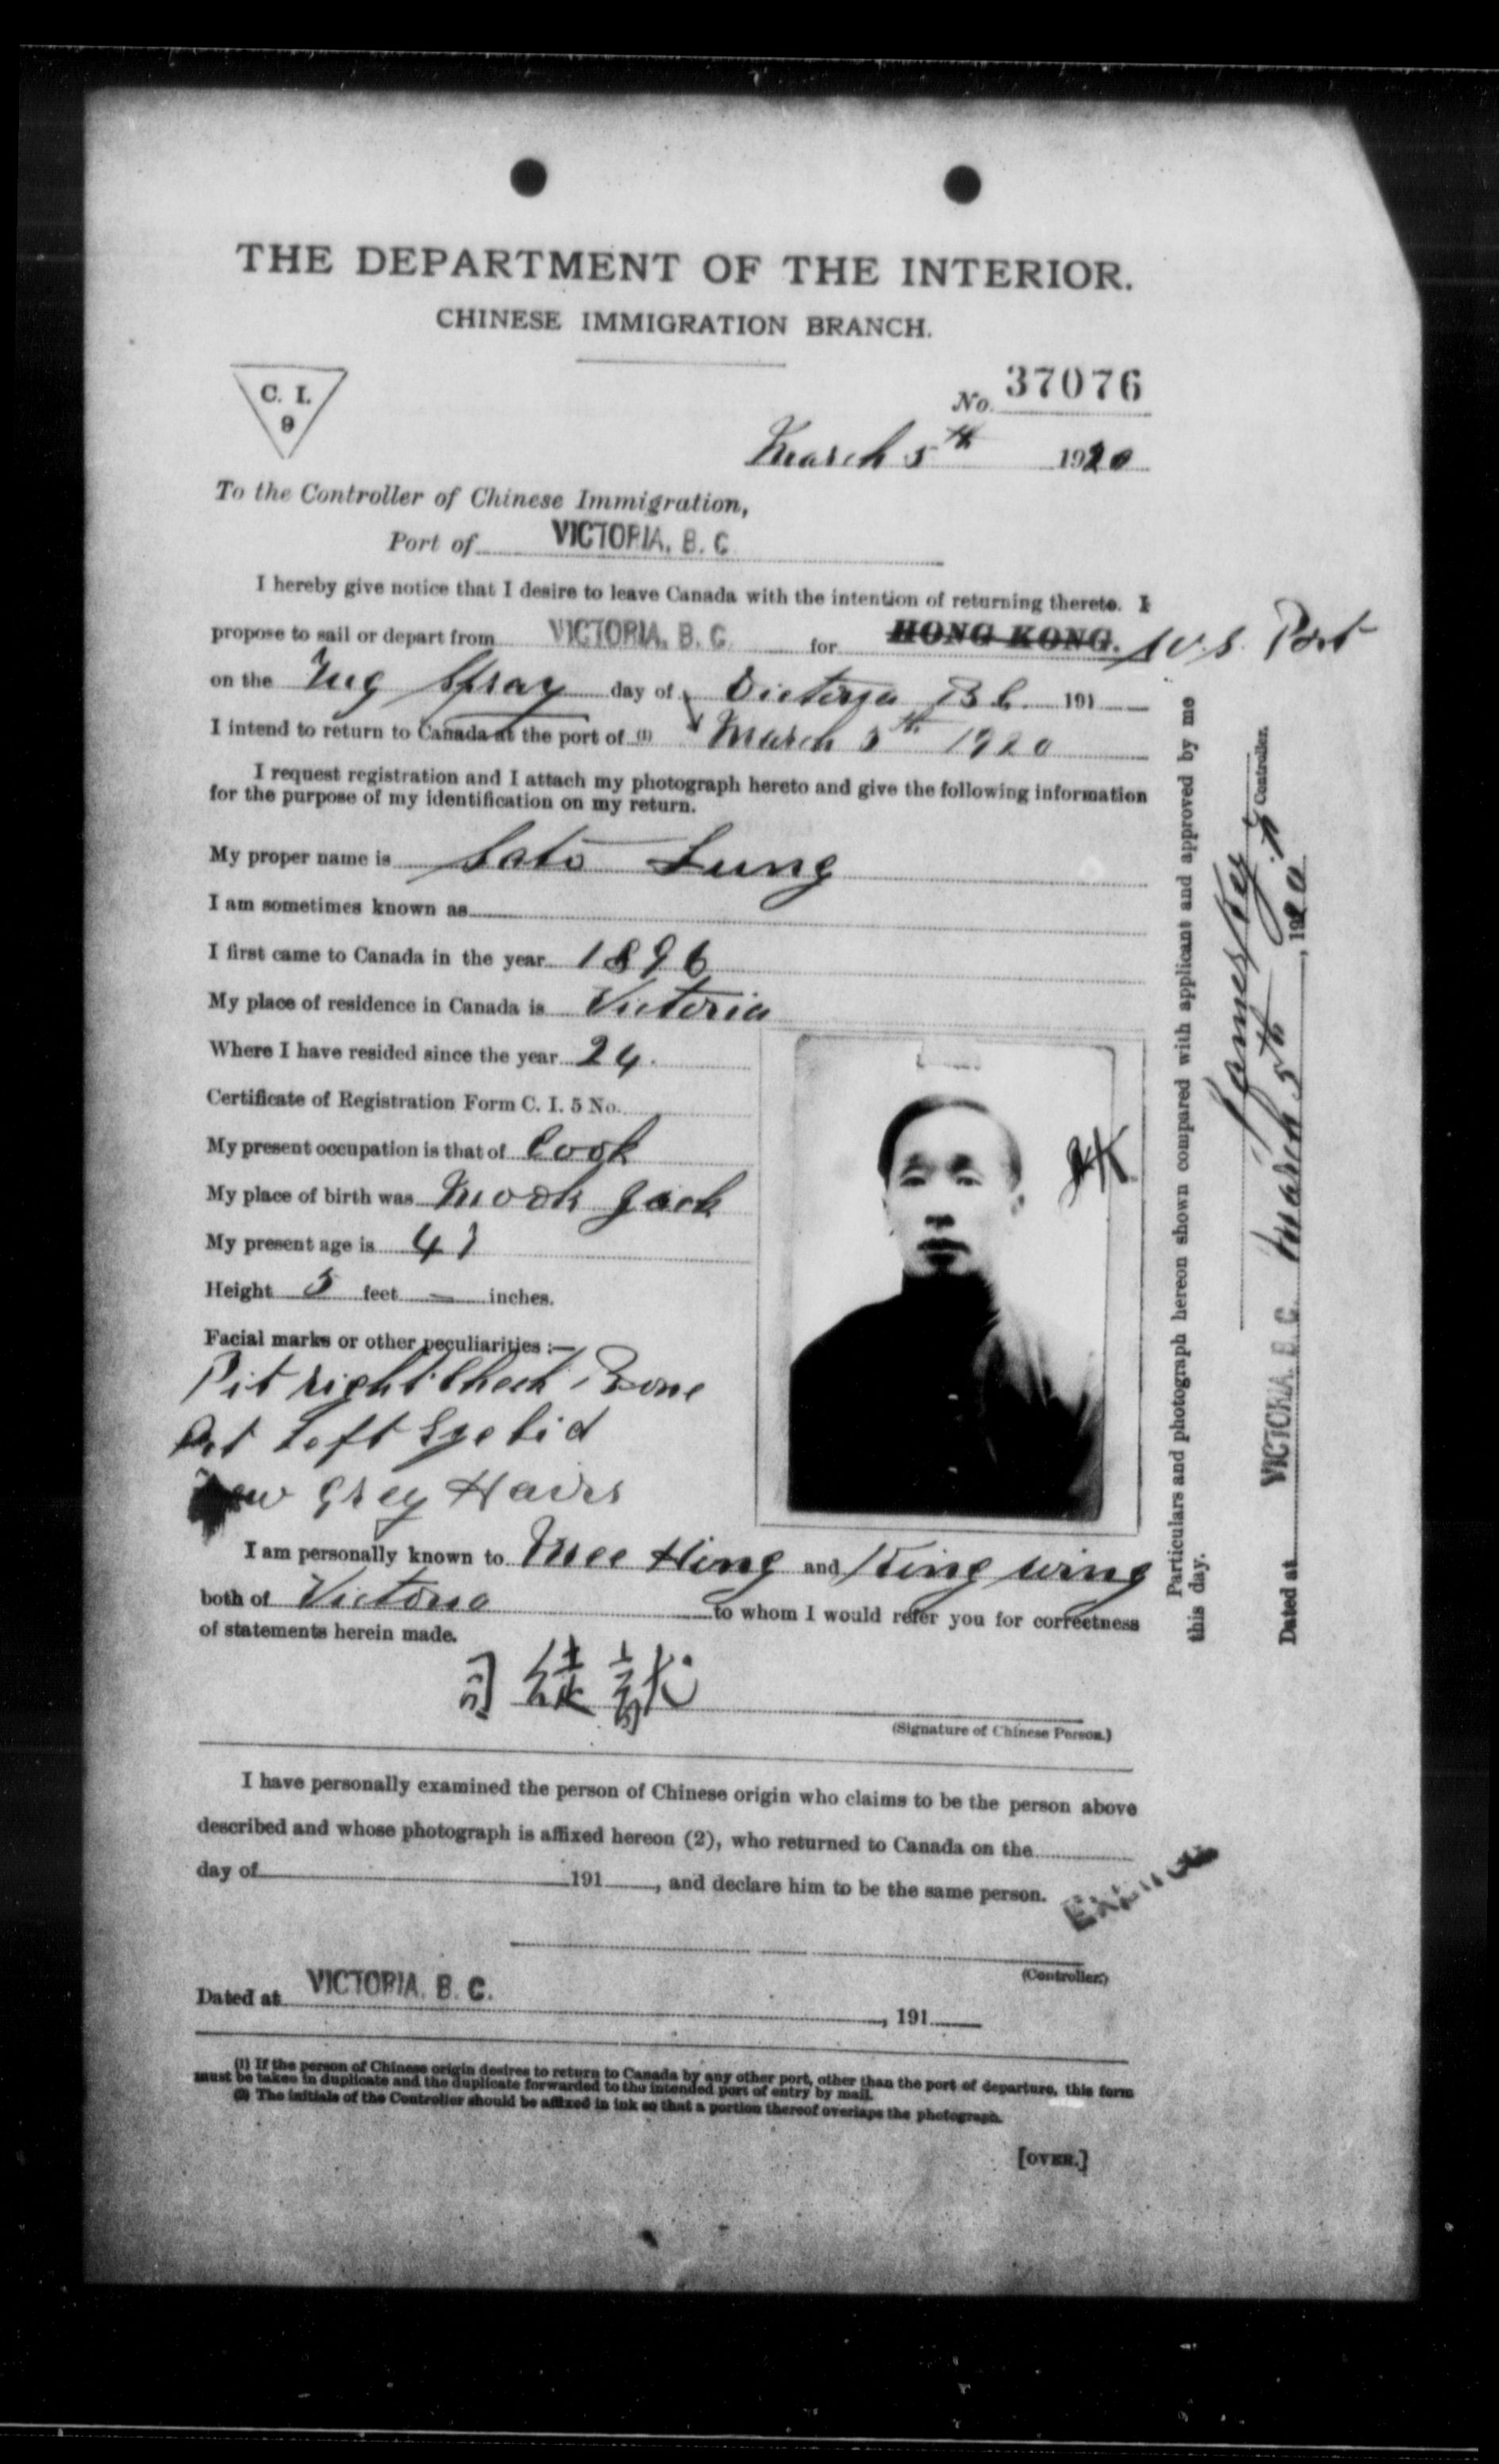 THE DEPARTMENT OF THE INTERIOR.
CHINESE IMMIGRATION BRANCH.
C. I.
9
No. 37076
March 5th 1920
To the Controller of Chinese Immigration,
Port of VICTORIA, B. C.
I hereby give notice that I desire to leave Canada with the intention of returning thereto. I
propose to sail or depart from VICTORIA, B. C. for HONG KONG. U.S. Port
on the Tug Spray day of Victoria B C. 191
I intend to return to Canada at the port of (1) March 5th 1920
I request registration and I attach my photograph hereto and give the following information
for the purpose of my identification on my return.
My proper name is Sato Lung
I am sometimes known as
I first came to Canada in the year 1896
My place of residence in Canada is Victoria
Where I have resided since the year 24.
Certificate of Registration Form C. I. 5 No.
My present occupation is that of Cook
My place of birth was Mook Jack
My present age is 41
Height 5 feet — inches.
Facial marks or other peculiarities :—
Pit right Cheek Bone
Pit Left Eyelid
Few Grey Hairs
I am personally known to Mee Hing and King Wing
both of Victoria to whom I would refer you for correctness
of statements herein made.
司徒
(Signature of Chinese Person.)
I have personally examined the person of Chinese origin who claims to be the person above
described and whose photograph is affixed hereon (2), who returned to Canada on the
day of 191 , and declare him to be the same person.
(Controller.)
Dated at VICTORIA, B. C. , 191
(1) If the person of Chinese origin desires to return to Canada by any other port, other than the port of departure, this form
must be taken in duplicate and the duplicate forwarded to the intended port of entry by mail.
(2) The initials of the Controller should be affixed in ink so that a portion thereof overlaps the photograph.
[OVER.]
Particulars and photograph hereon shown compared with applicant and approved by me
this day.
Controller.
Dated at VICTORIA, B. C. March 5th , 1920